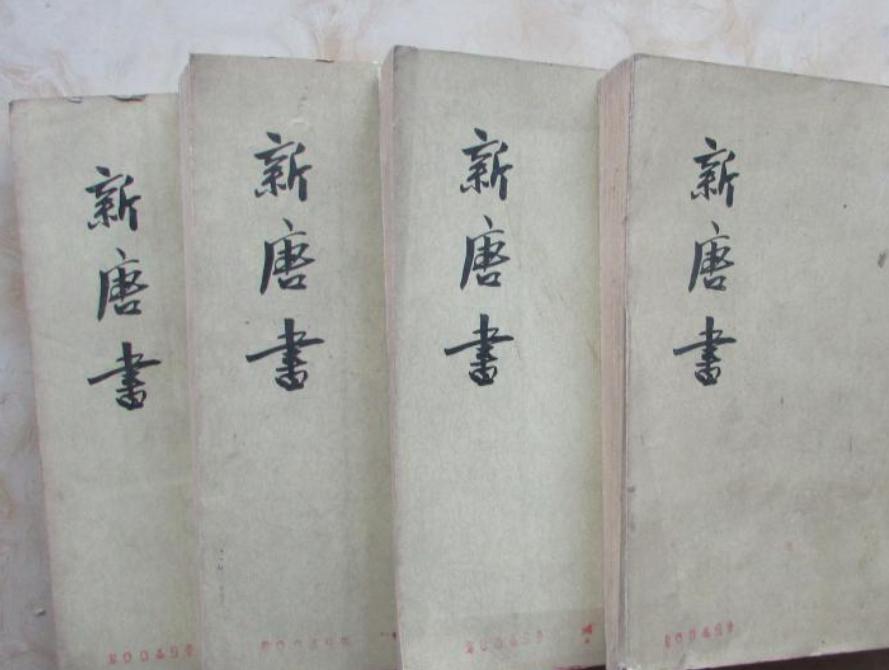 新唐書
新唐書
新唐書
新唐書